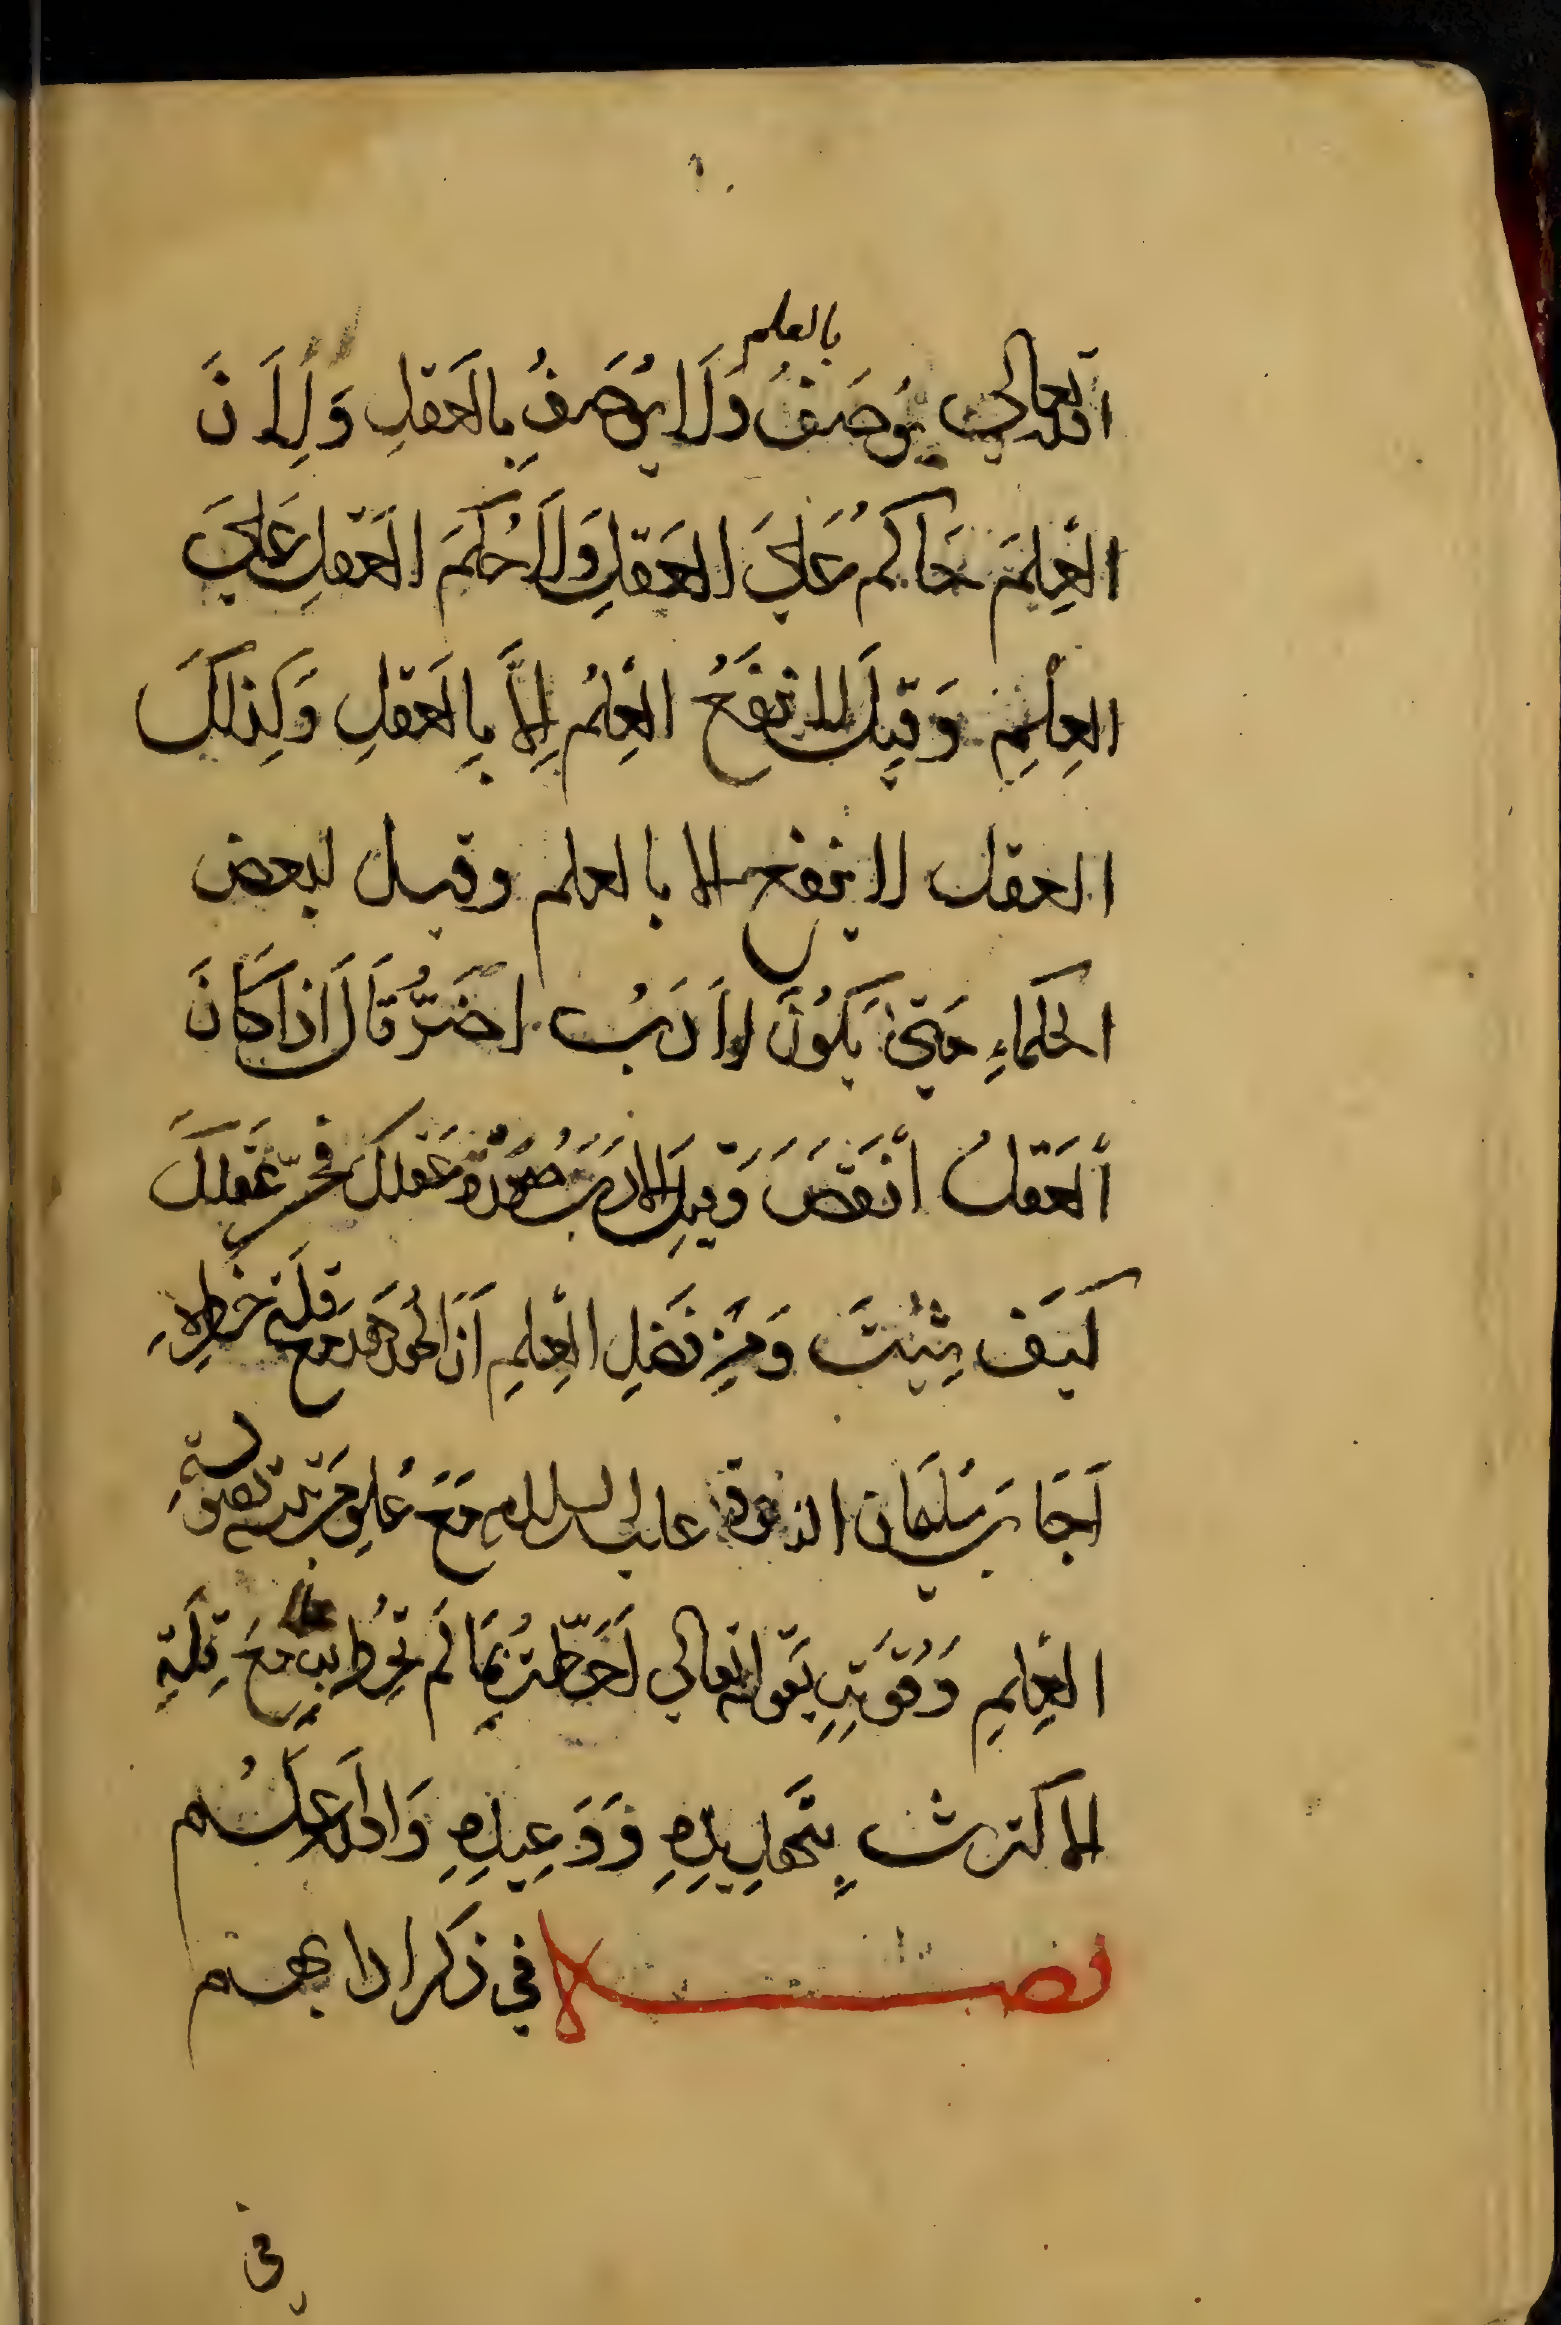 ١٠
بالعلم
الله تعالى يُوصَفُ وَلَا يُوصَفُ بِالعَقلِ وَلِأَنَّ
العِلمَ حَاكمُ عَلىَ العَقلِ وَلَا حُكمَ العَقلِ عَلىَ
العِلمِ وَقِيلَ لا ينفَعُ العِلمُ إِلَّا بِالعَقلِ وَكذلكَ
العقل لا ينفع الا بالعلم وقيل لبعض
الحكماءِ مَتىٰ يَكُونُ الأَدَبُ اضَرُّ قَالَ اذَا كَانَ
العَقلُ أنقَصَ وَقِيلَ الادَبُ صُورَةُ عَقلكَ فحَسِّن عَقلكَ
كيَفَ شِئتَ وَمِن فَضلِ العِلمِ اَنَ الهُدهُدَ مَعَ قلَّةِ خَطرِهِ
اَجَابَ سُلَيمَان النبوة عليه السلام مَعَ عُلوِ مَرتبَته لصَولَةِ
العِلمِ وَقُوَّتِهِ بقَوله تعالى اَحَطتُ بِمَا لَم تُحِط بِهِ مَعَ قِلَّةِ
الاكتراث بِتَهدِيدِهِ وَوَعِيدِهِ وَاللهُ اَعلَم
فصل في ذكر ابراهيم
في